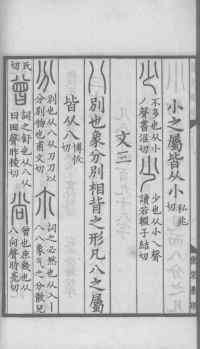 小之屬皆从小 私兆切
少 不多也从小
丿聲書沼切
尐 少也从小乀聲
讀若輟子結切
文三
八 別也象分別相背之形凡八之屬
皆从八 博拔切
分 別也从八从刀刀以
分別物也甫文切
尒 詞之必然也从入丨
八八象气之分散兒
氏切
曾 詞之舒也从八从
曰囪聲昨稜切
尚 曾也庶幾也从
八向聲時亮切